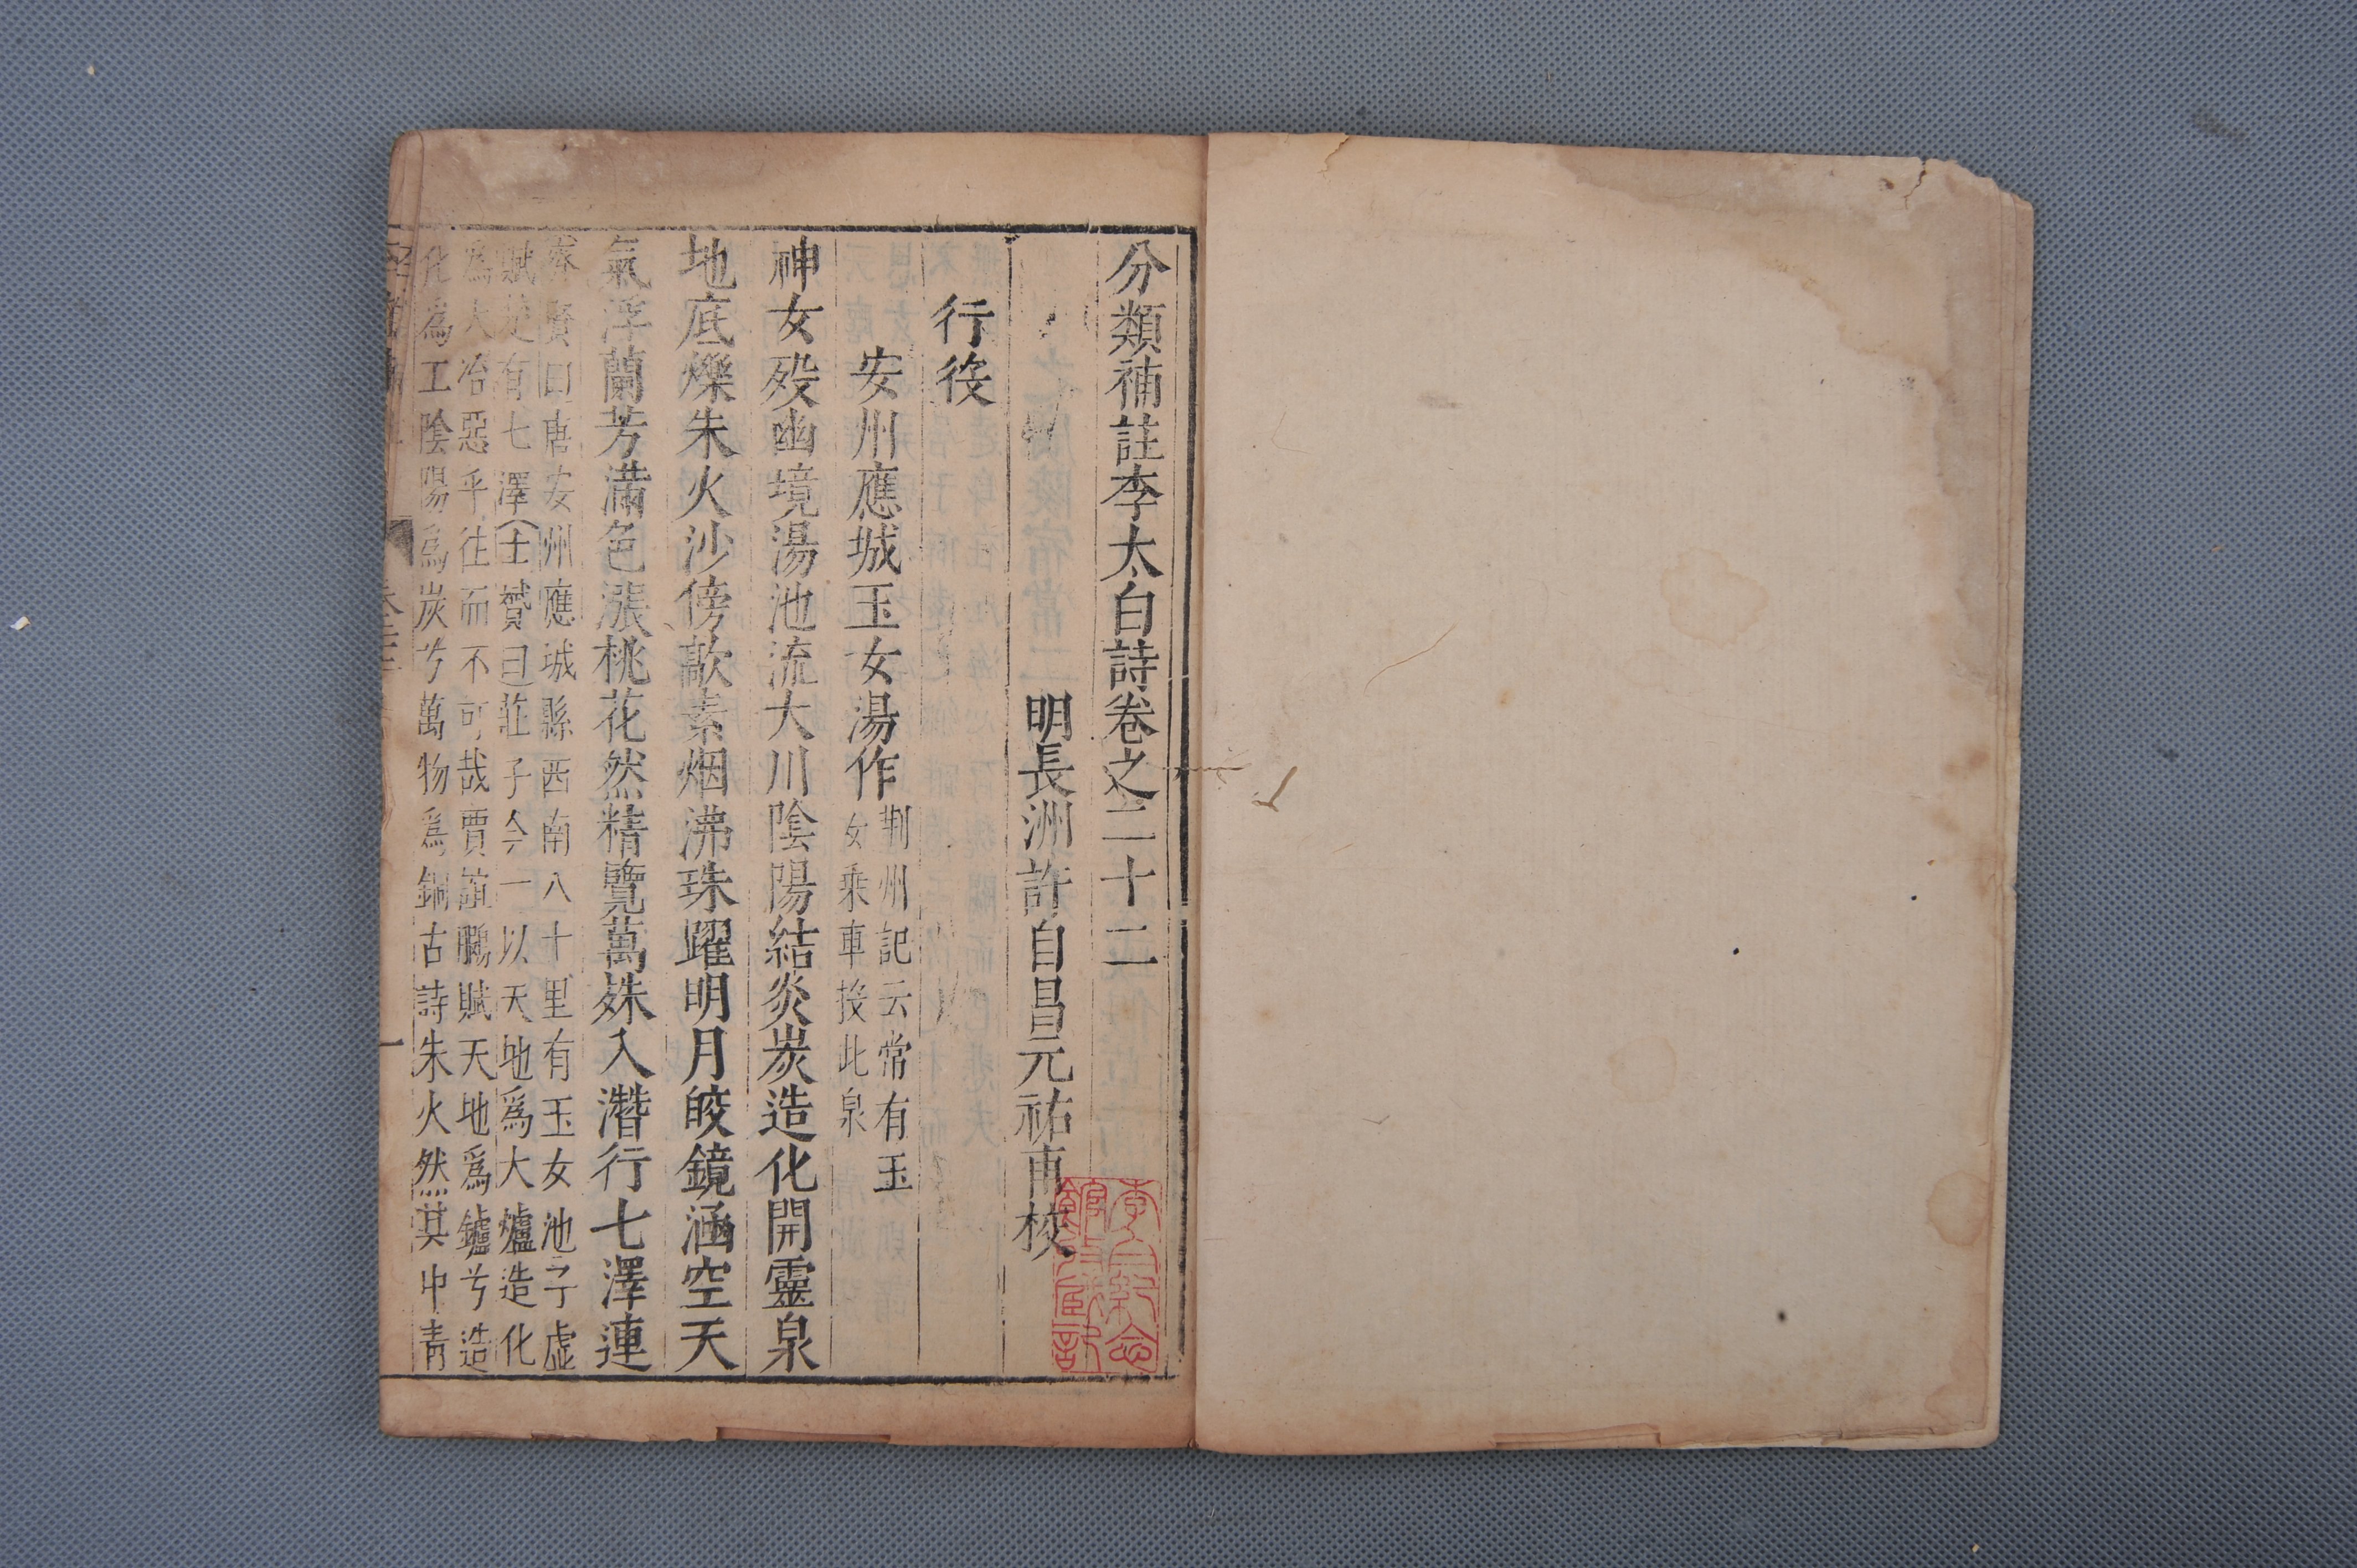 分類補註李太白詩卷之二十二
明長洲許自昌元祐甫校
行役
安州應城玉女湯作
荆州記云常有玉
女乘車投此泉
神女殁幽境湯池流大川陰陽結炎炭造化開靈泉
地底爍朱火沙傍歊素烟沸珠躍明月皎鏡涵空天
氣浮蘭芳滿色漲桃花然精覽萬姝入潛行七澤連
齊賢曰唐安州應城縣西南八十里有玉女池子虛
賦楚有七澤士贇曰莊子今一以天地爲大爐造化
爲大冶惡乎往而不可哉賈誼鵩賦天地爲鑪兮造
化爲工陰陽爲炭兮萬物爲銅古詩朱火然其中青
一